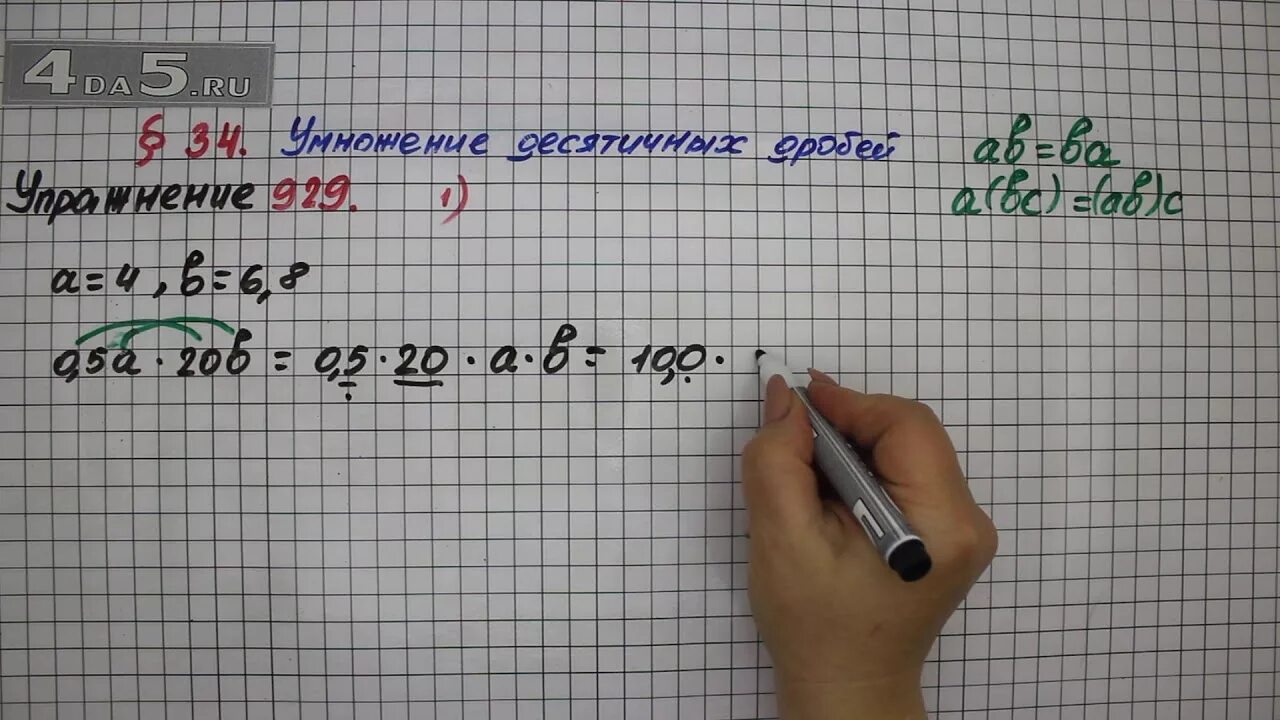 4DA5.RU
§ 34. Умножение десятичных дробей
ab = ba
Упражнение 929. 1)
a(bc) = (ab)c
a = 4 , b = 6,8
0,5a · 20b = 0,5 · 20 · a · b = 10,0 ·